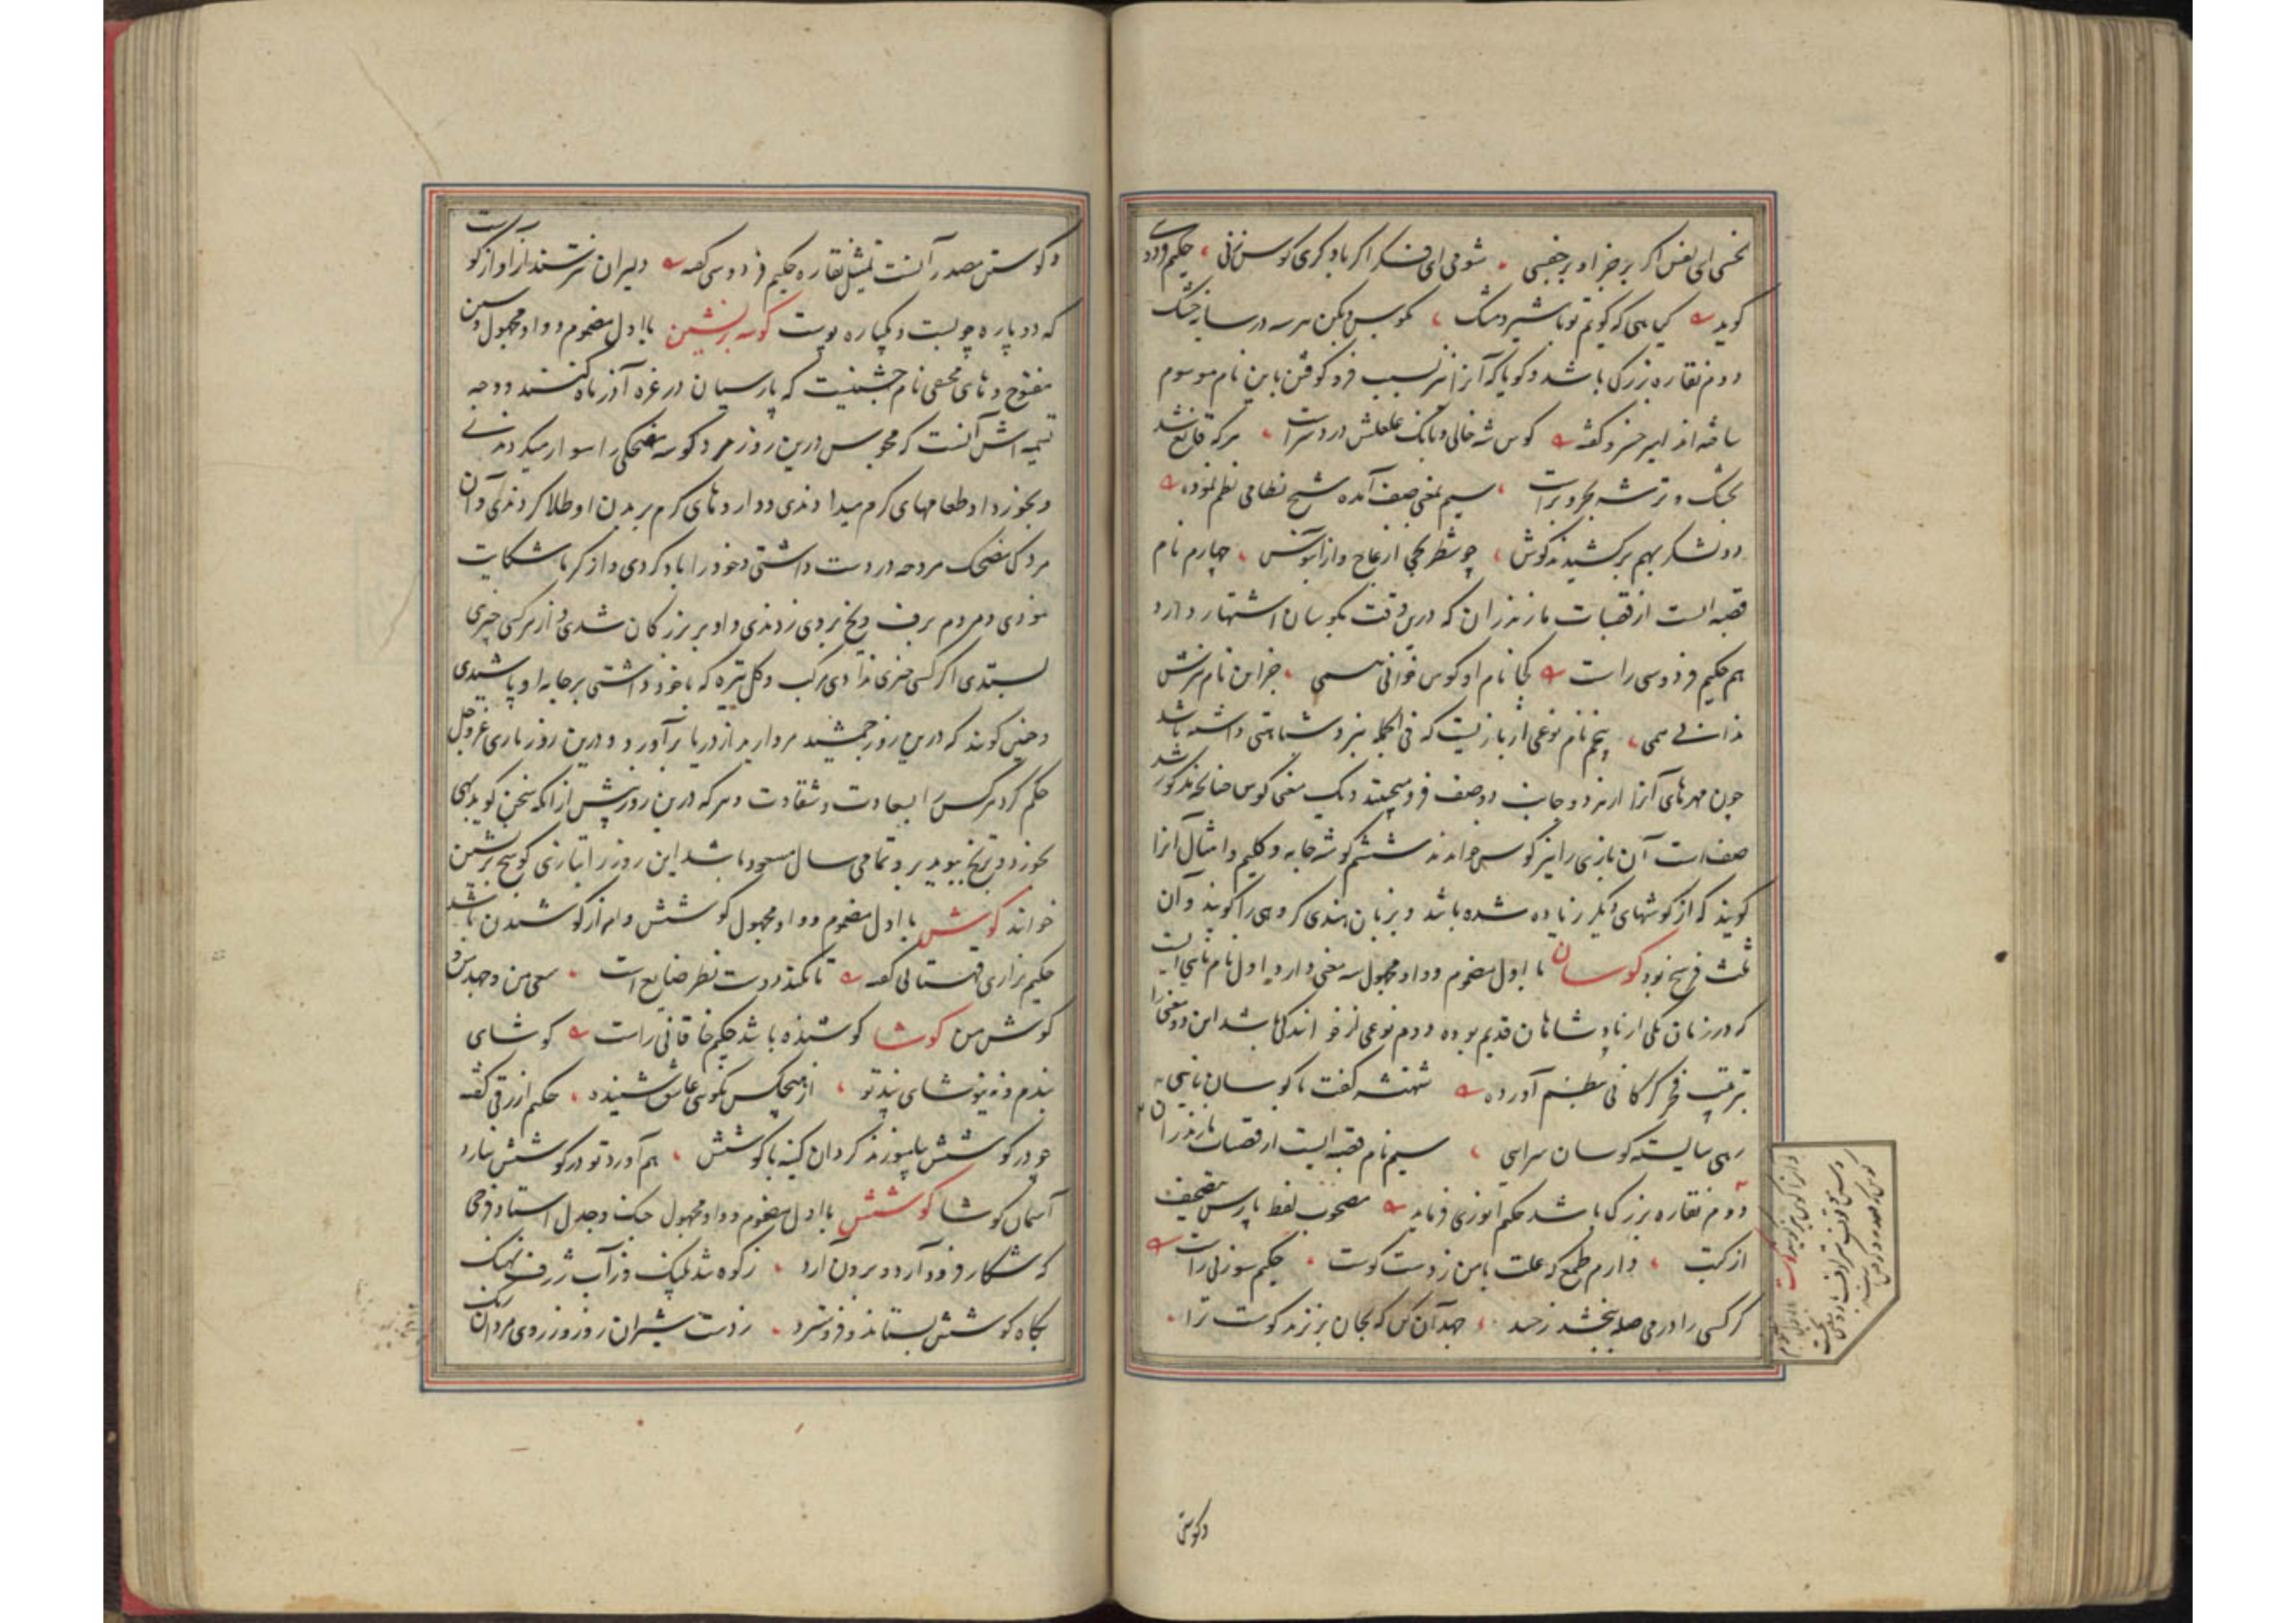 نخسی ای نفس اگر بر جز او بر خفسی شومی ای فکر اگر باد کری کوس زنی حکیم فردوسی
کوید که کویم تو با شیر و مشک بکوس و بکن هر سه در سایه خشک
دوم نقاره بزرک باشد و کویا که آنرا نیز بسبب فرو کوفتن باین نام موسوم
ساخته اند امیر خسرو کفته کوس شه خالی و بانک غلغلش درد سراست هر که قانع شد
بخشک و تر شه بحر و براست سیم بمعنی صف آمده شیخ نظامی نظم نموده
دو لشکر بهم برکشیدند کوش چو شطرنجی از عاج و از آبنوس چهارم نام
قصبه ایست از قصبات مازندران که درین وقت بکوسان اشتهار دارد
هم حکیم فردوسی راست کجا نام او کوس خوانی همی جز این نام نیزش
ندانی همی پنجم نام نوعی از بازیست که فی الجمله بنرد مشابهتی داشته باشد
چون مهرهای آنرا از هر دو جانب دو صف فرو میچینند و یک معنی کوس چنانچه مذکور شد
صف است آن بازی را نیز کوس خوانند ششم کوشه جامه و کلیم و امثال آنرا
کویند که از کوشهای دیکر زیاده شده باشد و بزبان هندی کروهی را کویند و آن
ثلث فرسخ بود کوسان با اول مضموم و واو مجهول سه معنی دارد اول نام نایی است
که در زمان یکی از پادشاهان قدیم بوده دوم نوعی از خوانندکی باشد این دو معنی را
بترتیب فخر کرکانی بنظم آورده شهنشه کفت با کوسان نایی
زهی شایسته کوسان سرایی سیم نام قصبه ایست از قصبات مازندران
دوم نقاره بزرک باشد حکیم انوری فرماید مصحوب لفظ پارس تصحیف
از کتب دارم طمع که علت با من ز دست کوست حکیم سوزنی راست
کر کسی را درمی صله بخشد ز حسد جهد آن کن که بجان برنزند کوست ترا
وکوستن
وکوستن مصدر آنست تمثیل نقاره حکیم فردوسی کفته دلیران نترسند از آواز کوست
که دو پاره چوبست و یکپاره پوست کوسه برنشین با اول مضموم و واو مجهول و سین
مفتوح و های مخفی نام جشنیست که پارسیان در غره آذر ماه کنند و وجه
تسمیه اش آنست که مجوس درین روز مرد کوسه مضحکی را سوار میکردندی
و بخورد او طعامهای کرم میدادندی و داروهای کرم بر بدن او طلا کردندی و آن
مردک مضحک مروحه در دست داشتی و خود را باد کردی و از کرما شکایت
نمودی و مردم برف و یخ بر وی زدندی و او بر بزرکان شدی و از هر کسی چیزی
بستدی اکر کسی چیزی ندادی مرکب و کل تیره که با خود داشتی بر جامه او پاشیدی
و چنین کویند که درین روز جمشید مروارید از دریا برآورد و درین روز باری عز و جل
حکم کرد هر کس را بسعادت و شقاوت و هر که درین روز پیش از آنکه سخن کوید بهی
بخورد و ترنج ببوید بر وتمامی سال مسعود باشد این روز را بتازی کوسج برنشین
خوانند کوش با اول مضموم و واو مجهول کوشش و امر از کوشیدن باشد
حکیم نزاری قهستانی کفته تا نکند دوست نظر ضایع است سعی من و جهد من و
کوش من کوشا کوشنده باشد حکیم خاقانی راست کوشای
بندم و نه نیوشای پند تو از هیچکس نکوشی عاشق شنیده حکیم ازرقی کفته
چو در کوشش بیامیزند کردان کینه با کوشش هم آورد تو در کوشش نیارد
آسمان کوشا کوشش با اول مضموم و واو مجهول جنک و جدل استاد فرخی
که شکار فرود آرد و برون آرد ز کوه تند پلنک و ز آب ژرف نهنک
بکاه کوشش بستاند و فرو سترد ز دست شیران زور و ز روی مردان رنک